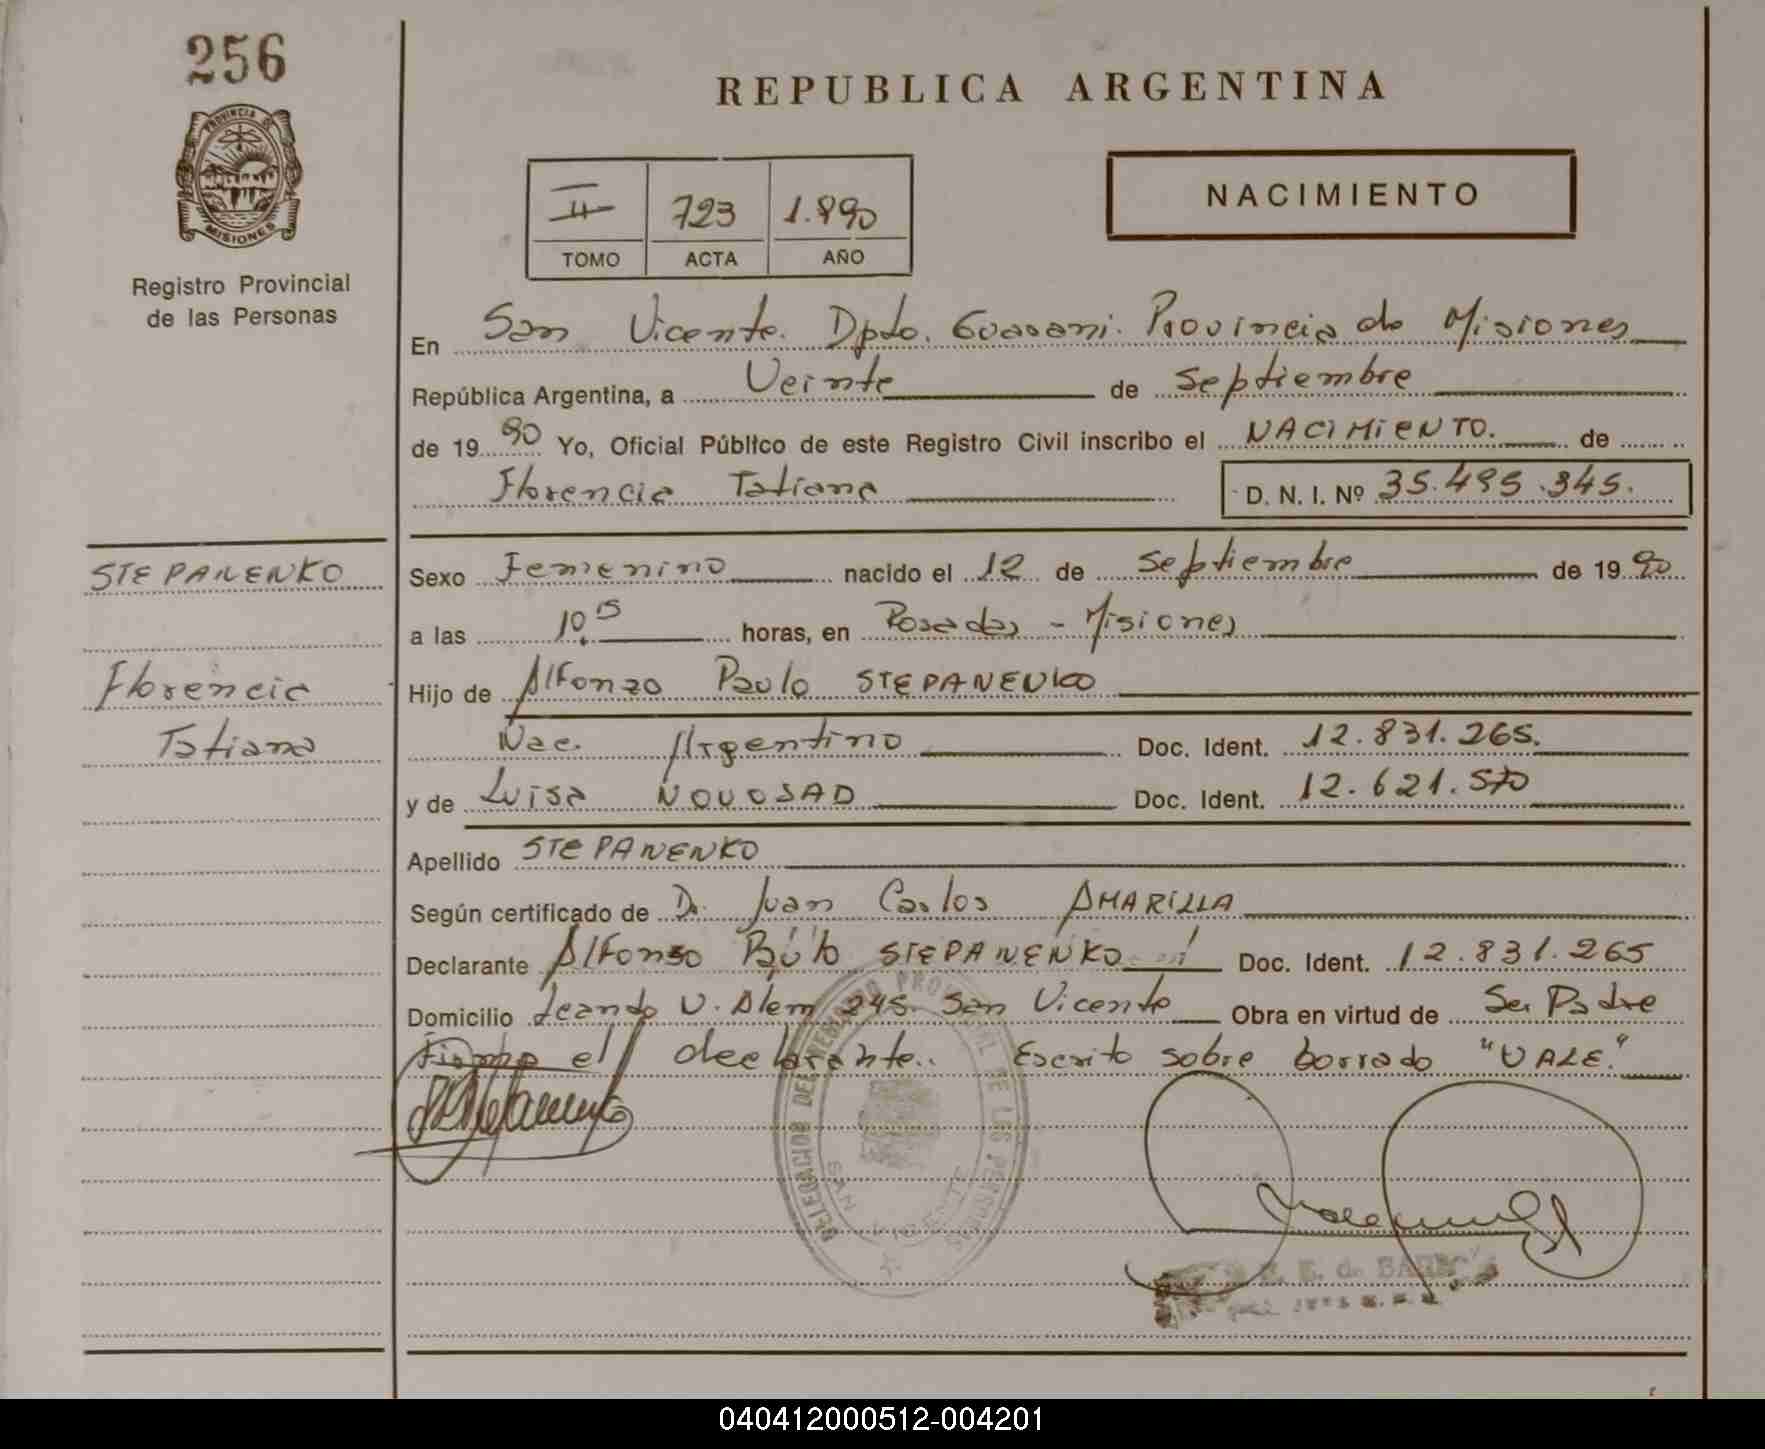 256
REPUBLICA ARGENTINA
PROVINCIA DE
MISIONES
Registro Provincial
de las Personas
II 723 1.990
TOMO ACTA AÑO
NACIMIENTO
En San Vicente. Dpto. Guarani. Provincia de Misiones
República Argentina, a Veinte de septiembre
de 1990 Yo, Oficial Público de este Registro Civil inscribo el NACIMIENTO. de
Florencia Tatiana D. N. I. Nº 35.495.345.
STEPANENKO
Florencia
Tatiana
Sexo Femenino nacido el 12 de septiembre de 1990
a las 10.15 horas, en Posadas - Misiones
Hijo de Alfonzo Paulo STEPANENKO
Nac. Argentino Doc. Ident. 12.831.265.
y de Luisa NOVOSAD Doc. Ident. 12.621.570
Apellido STEPANENKO
Según certificado de Dr. Juan Carlos AMARILLA
Declarante Alfonso Paulo STEPANENKO Doc. Ident. 12.831.265
Domicilio Leandro V. Alem 245. San Vicente Obra en virtud de Ser Padre
Firmha el declarante. Escrito sobre borrado "VALE."
DELEGACION DEL REGISTRO PROVINCIAL DE LAS PERSONAS
SAN VICENTE
040412000512-004201